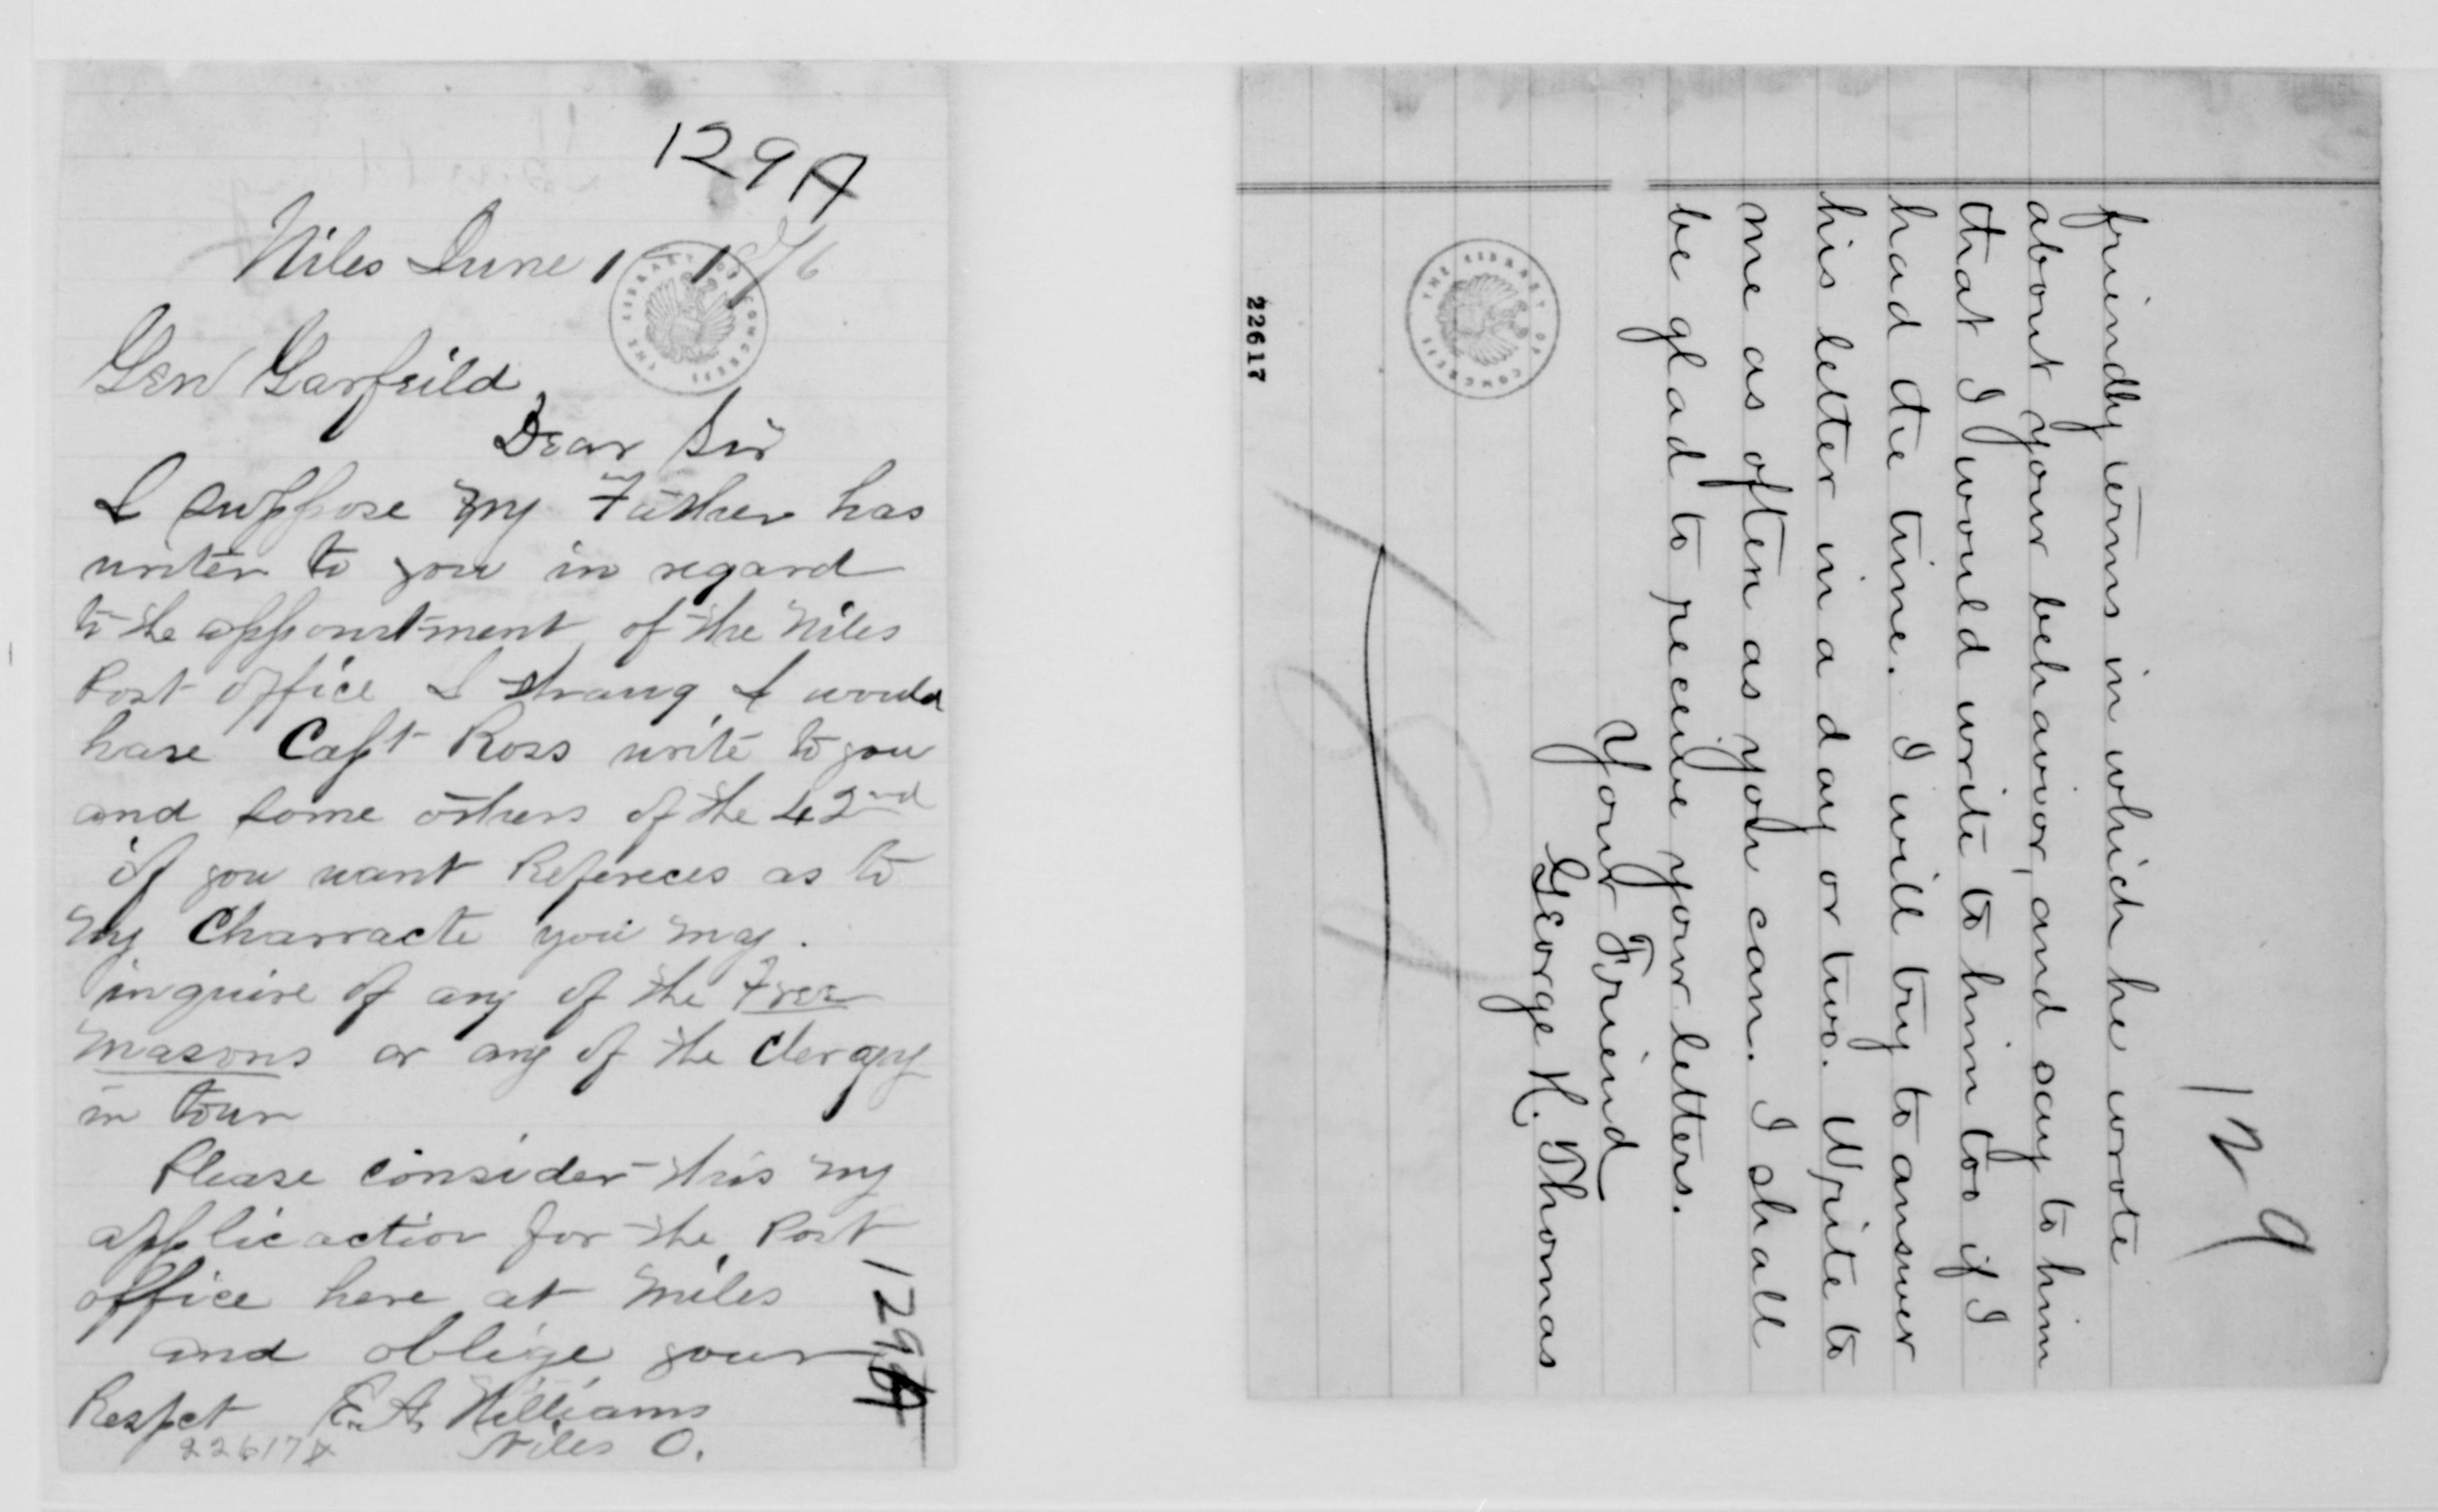 129A
Niles June 1 1876
Gen Garfeild
Dear Sir
I suppose my Father has
writen to you in regard
to the appointment of the Niles
Post office I I would
have Capt Ross write to you
and some others of the 42nd
if you want Refereces as to
my Charracte you may.
inquire of any of the Free
masons or any of the Clergy
in town
Please consider this my
applicaction for the Post
office here at Niles
and oblige your
Respct E. A. Williams
Niles O.
22617A
129A
THE LIBRARY OF CONGRESS
129
friendly terms in which he wrote
about your behavior, and say to him
that I would write to him too if I
had the time. I will try to answer
his letter in a day or two. Write to
me as often as you can. I shall
be glad to receive your letters.
Your Friend
George H. Thomas
THE LIBRARY OF CONGRESS
129
22617